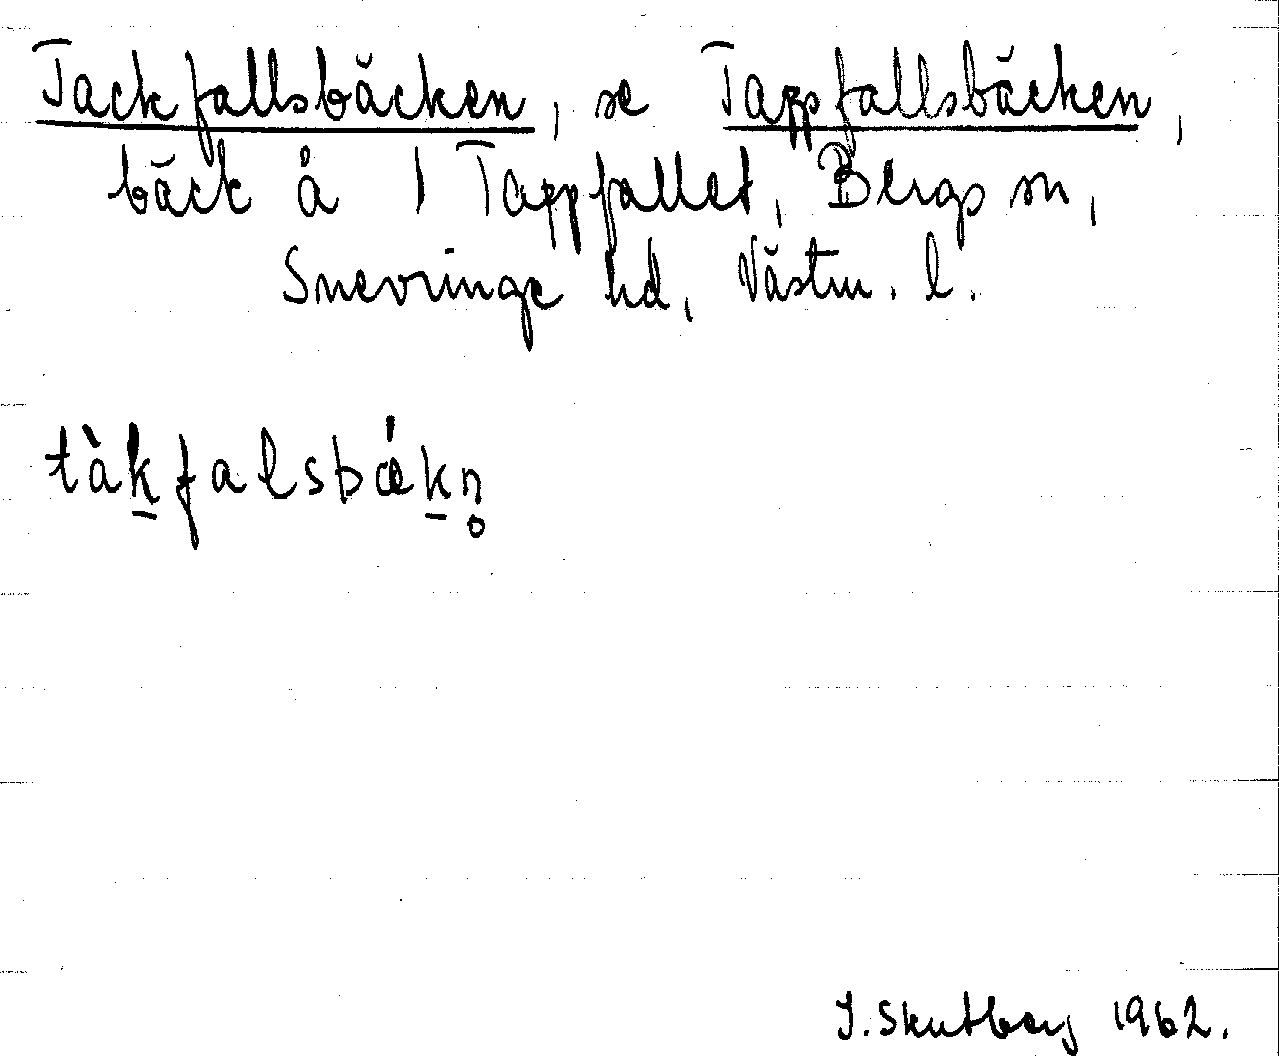 Tackfallsbäcken, se Tappfallsbäcken,
bäck å 1 Tappfallet, Bergs sn,
Snevringe hd, Västm. l.
tàk̲falsbǽk̲n̥
I. Skutberg 1962.